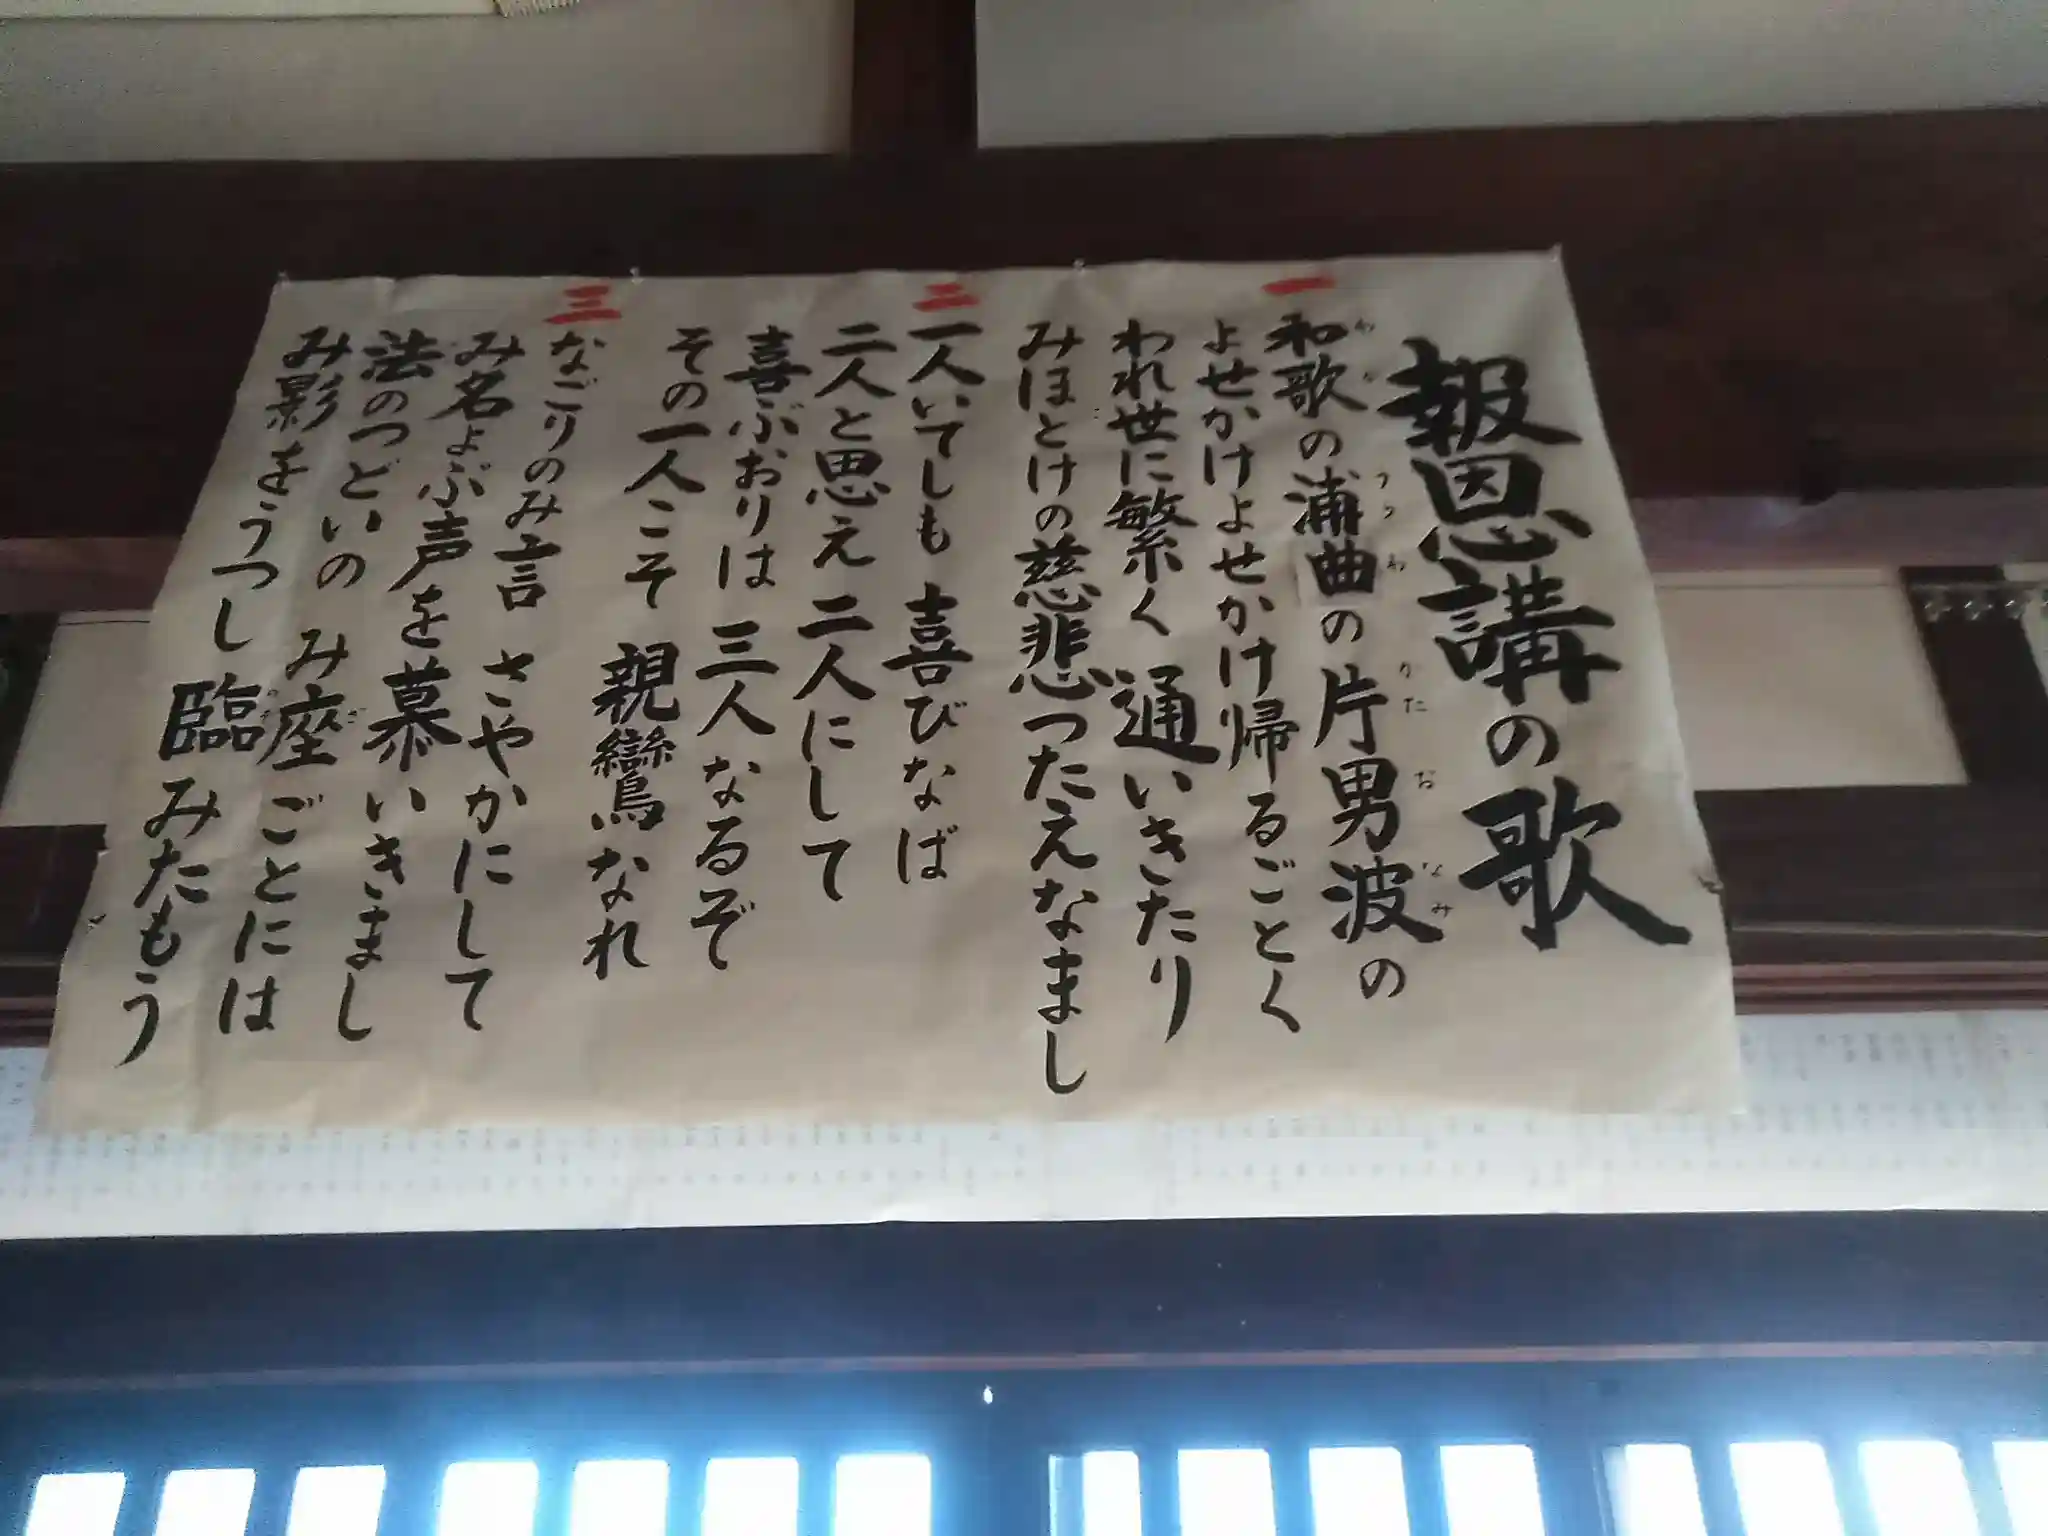 報恩講の歌
一
和歌の浦曲の片男波の
よせかけよせかけ帰るごとく
われ世に繁く 通いきたり
みほとけの慈悲つたえなまし
二
一人いてしも 喜びなば
二人と思え 二人にして
喜ぶおりは 三人なるぞ
その一人こそ 親鸞なれ
三
なごりのみ言 さやかにして
み名よぶ声を慕いきまし
法のつどいの み座ごとには
み影をうつし 臨みたもう